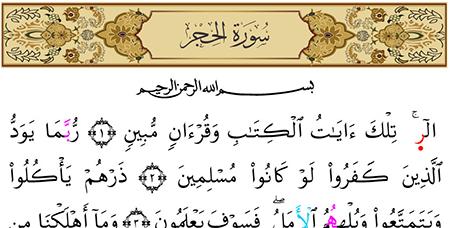 سُورَةُ الحِجْرِ
بِسْمِ اللهِ الرَّحْمٰنِ الرَّحِيمِ
الٓرۚ تِلْكَ ءَايَٰتُ ٱلْكِتَٰبِ وَقُرْءَانٍ مُّبِينٍ ﴿١﴾ رُّبَمَا يَوَدُّ
ٱلَّذِينَ كَفَرُوا۟ لَوْ كَانُوا۟ مُسْلِمِينَ ﴿٢﴾ ذَرْهُمْ يَأْكُلُوا۟
وَيَتَمَتَّعُوا۟ وَيُلْهِهِمُ ٱلْأَمَلُۖ فَسَوْفَ يَعْلَمُونَ ﴿٣﴾ وَمَآ أَهْلَكْنَا مِن